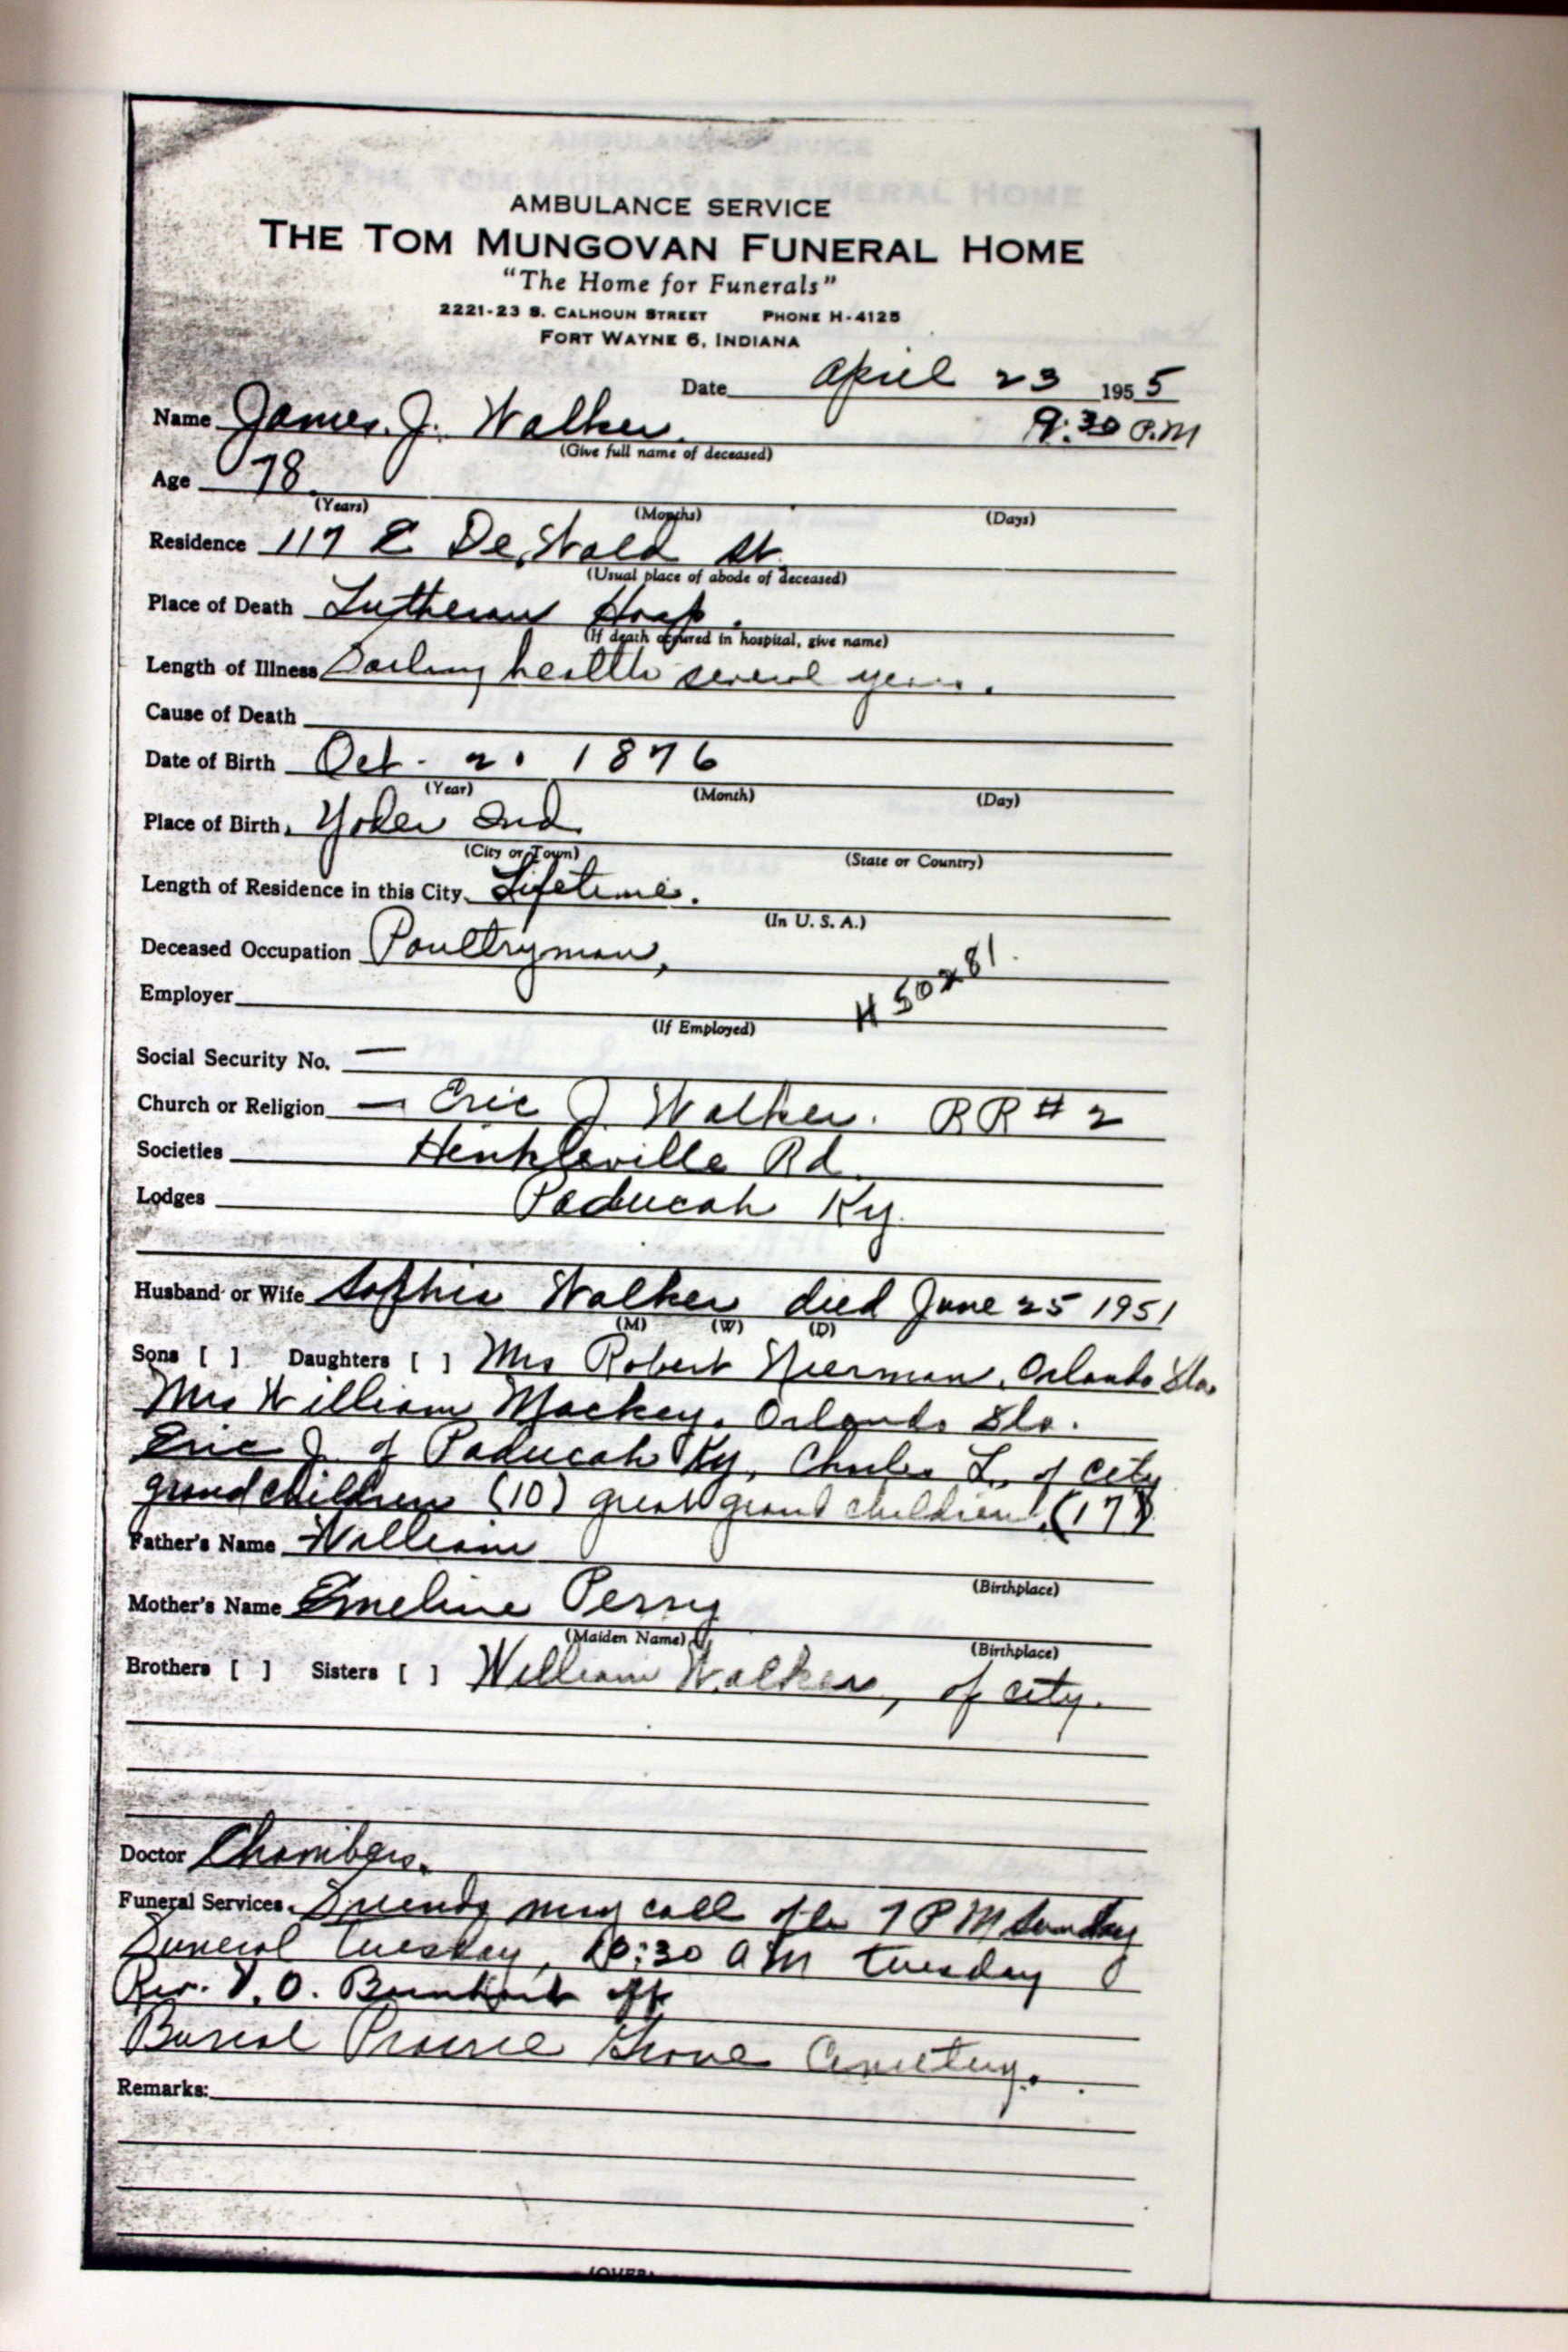 AMBULANCE SERVICE
THE TOM MUNGOVAN FUNERAL HOME
"The Home for Funerals"
2221-23 S. CALHOUN STREET PHONE H-4125
FORT WAYNE 6, INDIANA
Date April 23 1955
Name James J. Walker. 9:30 P.M
(Give full name of deceased)
Age 78
(Years) (Months) (Days)
Residence 117 E DeWald St.
(Usual place of abode of deceased)
Place of Death Lutheran Hosp.
(If death occured in hospital, give name)
Length of Illness Failing health several years.
Cause of Death
Date of Birth Oct. 2. 1876
(Year) (Month) (Day)
Place of Birth Yoder Ind.
(City or Town) (State or Country)
Length of Residence in this City. Lifetime.
(In U. S. A.)
Deceased Occupation Poultryman,
H 50281.
Employer
(If Employed)
Social Security No. —
Church or Religion — Eric J Walker. RR # 2
Societies Hinkleville Rd.
Lodges Paducah Ky.
Husband or Wife Sophia Walker died June 25 1951
(M) (W) (D)
Sons [ ] Daughters [ ] Mrs Robert Nierman, Orlando Fla.
Mrs William Mackey, Orlando Fla.
Eric J. of Paducah Ky, Charles L., of city
grandchildren (10) great grand children, (17)
Father's Name William
(Birthplace)
Mother's Name Emeline Perry
(Maiden Name) (Birthplace)
Brothers [ ] Sisters [ ] William Walker, of city.
Doctor Chambers.
Funeral Services. Friends may call after 7 PM Sunday
Funeral Tuesday, 10:30 AM Tuesday
Rev. V. O.
Burial Prairie Grove Cemetery.
Remarks:
(OVER)